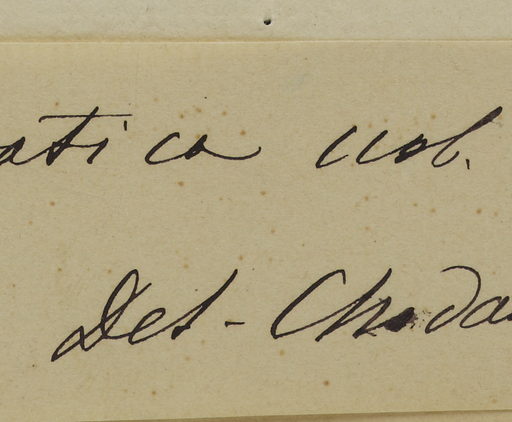 atica nob.
Det- Choda